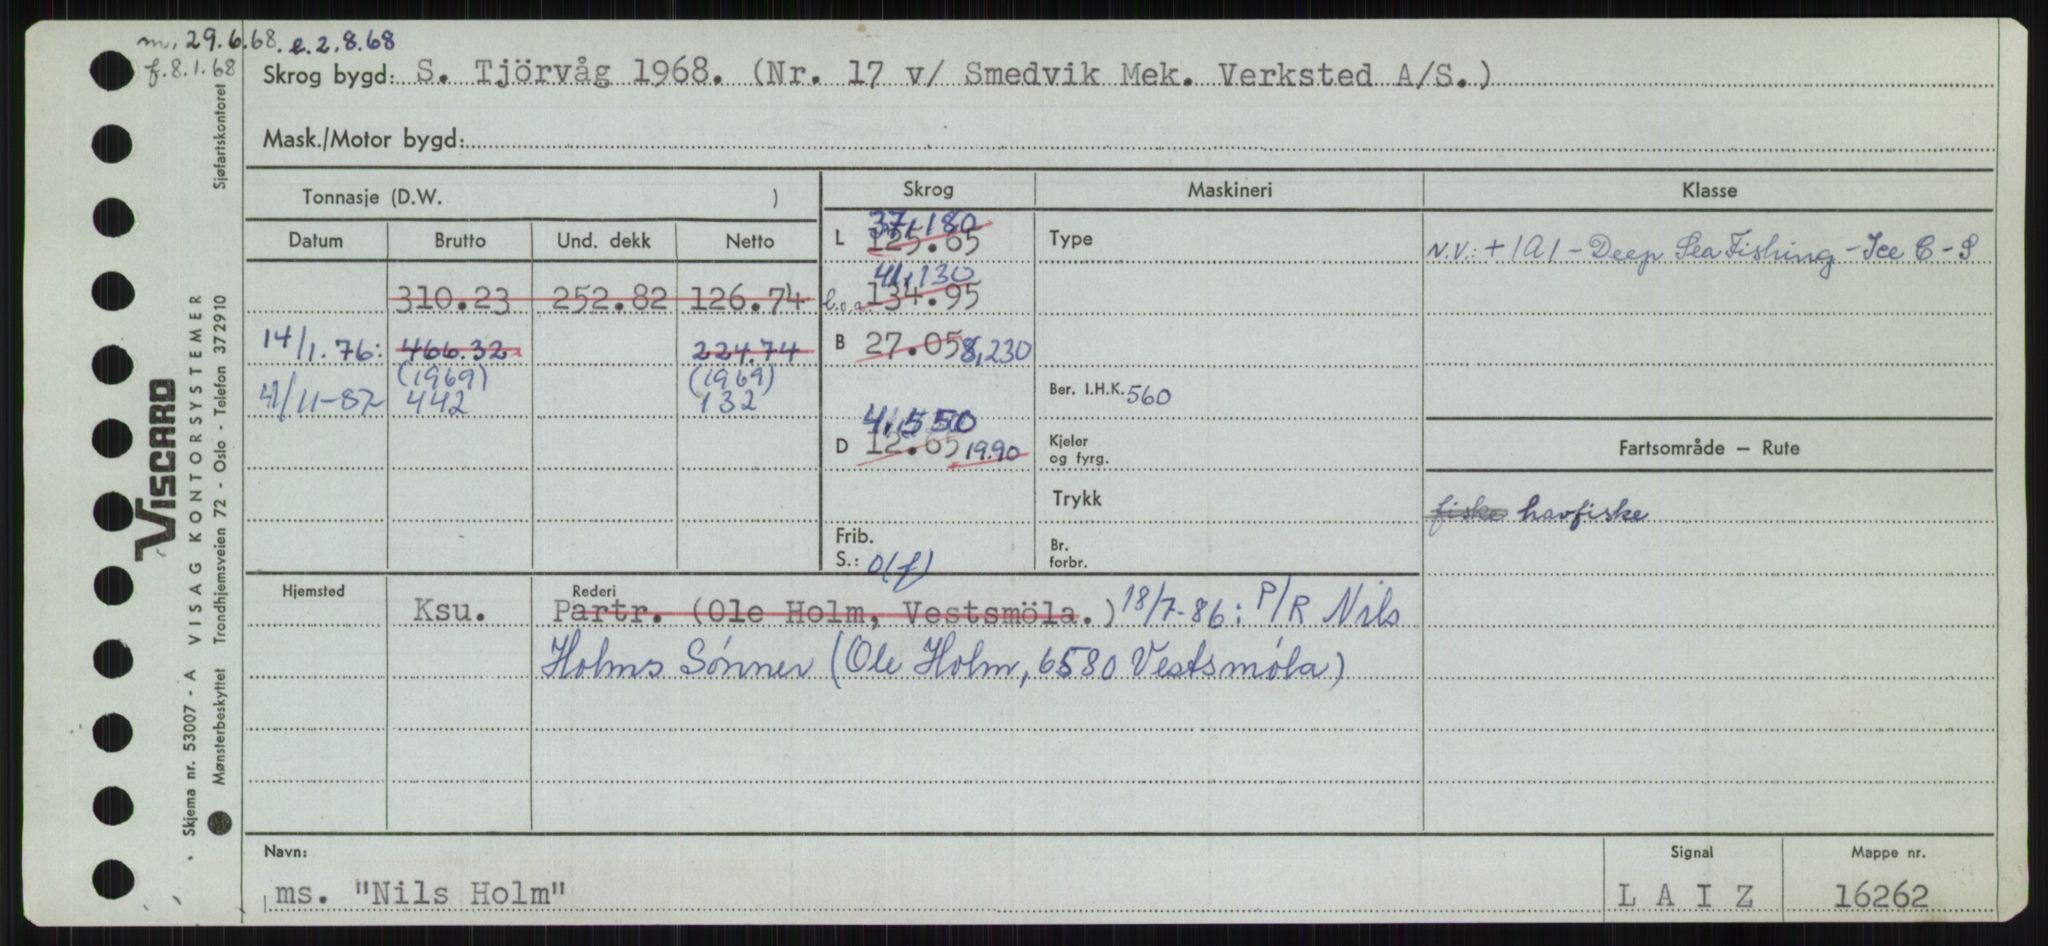 m. 29.6.68. e. 2.8.68
f. 8.1.68
Skrog bygd: S. Tjörvåg 1968. (Nr. 17 v/ Smedvik Mek. Verksted A/S.)
Mask./Motor bygd:
Tonnasje (D.W. )
Skrog Maskineri Klasse
Datum Brutto Und. dekk Netto
310.23 252.82 126.74
14/1.76: 466.32 224.74
(1969) (1969)
4/11-87 442 132
L 37,180
125.65
41,130
l.o.a. 134.95
B 27.05 8,230
4,550
D 12.65 19.90
Frib.
S.: 0(f)
Type
Ber. I.H.K. 560
Kjeler
og fyrg.
Trykk
Br.
forbr.
N.V.: + 1A1 - Deep Sea Fishing - Ice C - S
Fartsområde – Rute
fiske havfiske
Hjemsted Rederi
Ksu. Partr. (Ole Holm, Vestsmöla.) 18/7-86: P/R Nils
Holms Sønner (Ole Holm, 6580 Vestsmøla)
Navn: Signal Mappe nr.
ms. "Nils Holm" L A I Z 16262
VISCARD
Skjema nr. 53007 - A VISAG KONTORSYSTEMER
Mønsterbeskyttet Trondhjemsveien 72 - Oslo - Telefon 372910 Sjøfartskontoret